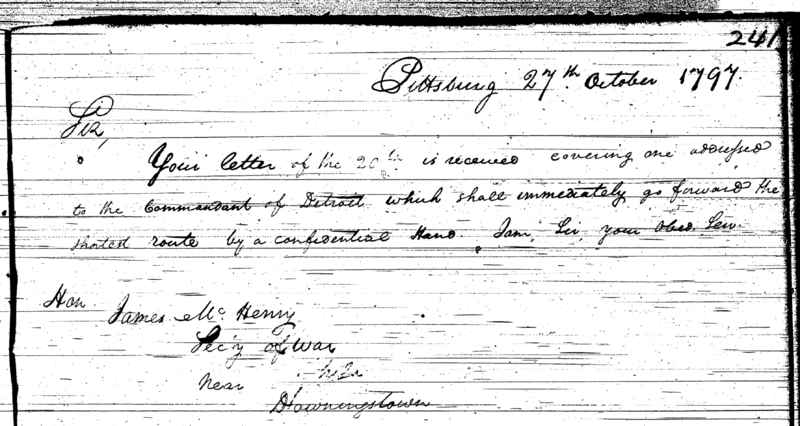 241
Pittsburg 27th October 1797.
Sir,
Your letter of the 20th is received covering one addressed
to the Commandant of Detroit which shall immediately go forward the
shortest route by a confidential Hand. I am, Sir, your Obed. Serv.
Hon
James McHenry
Sec'y of War
Near
Downingstown